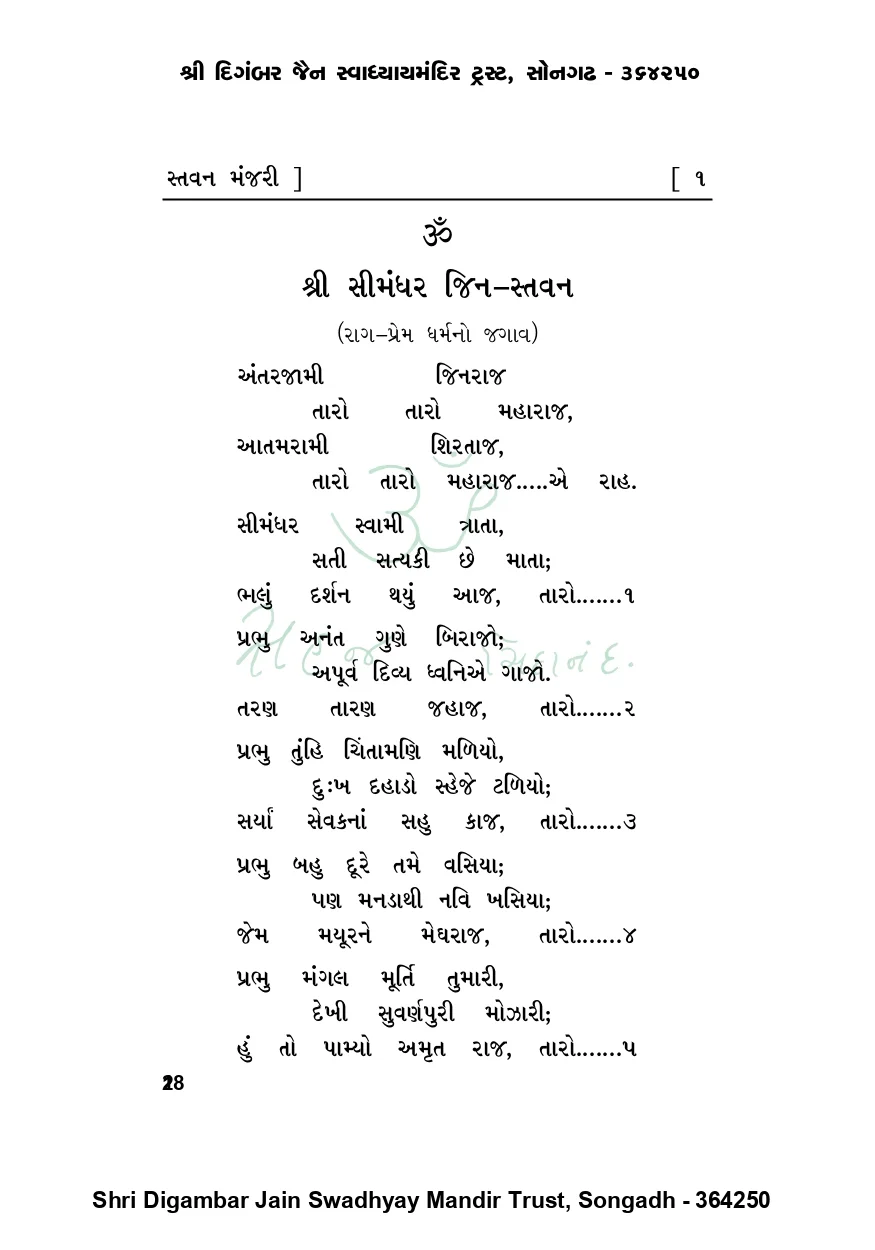 શ્રી દિગંબર જૈન સ્વાધ્યાયમંદિર ટ્રસ્ટ, સોનગઢ - ૩૬૪૨૫૦
સ્તવન મંજરી ] [ ૧
ૐ
શ્રી સીમંધર જિન–સ્તવન
(રાગ–પ્રેમ ધર્મનો જગાવ)
અંતરજામી જિનરાજ
તારો તારો મહારાજ,
આતમરામી શિરતાજ,
તારો તારો મહારાજ.....એ રાહ.
સીમંધર સ્વામી ત્રાતા,
સતી સત્યકી છે માતા;
ભલું દર્શન થયું આજ, તારો.......૧
પ્રભુ અનંત ગુણે બિરાજો;
અપૂર્વ દિવ્ય ધ્વનિએ ગાજો.
તરણ તારણ જહાજ, તારો.......૨
પ્રભુ તુંહિ ચિંતામણિ મળિયો,
દુઃખ દહાડો સ્હેજે ટળિયો;
સર્યાં સેવકનાં સહુ કાજ, તારો.......૩
પ્રભુ બહુ દૂરે તમે વસિયા;
પણ મનડાથી નવિ ખસિયા;
જેમ મયૂરને મેઘરાજ, તારો.......૪
પ્રભુ મંગલ મૂર્તિ તુમારી,
દેખી સુવર્ણપુરી મોઝારી;
હું તો પામ્યો અમૃત રાજ, તારો.......૫
Shri Digambar Jain Swadhyay Mandir Trust, Songadh - 364250